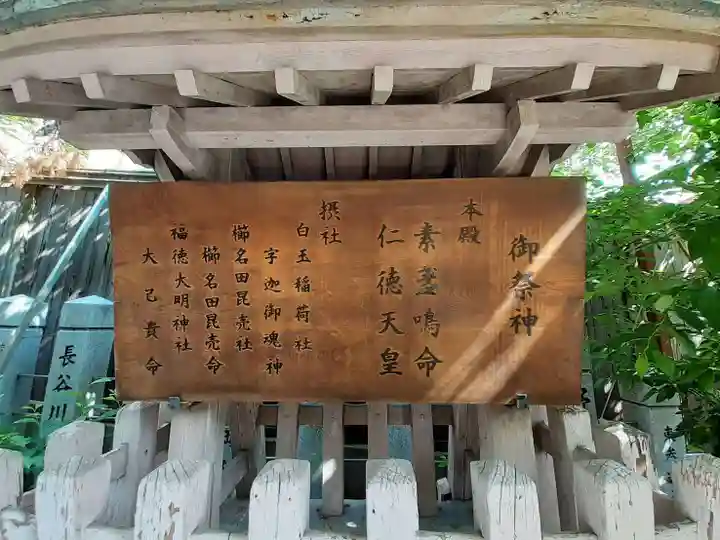 御祭神
本殿
素盞鳴命
仁徳天皇
摂社
白玉稲荷社
宇迦御魂神
櫛名田昆売社
櫛名田昆売命
福徳大明神社
大己貴命
長谷川